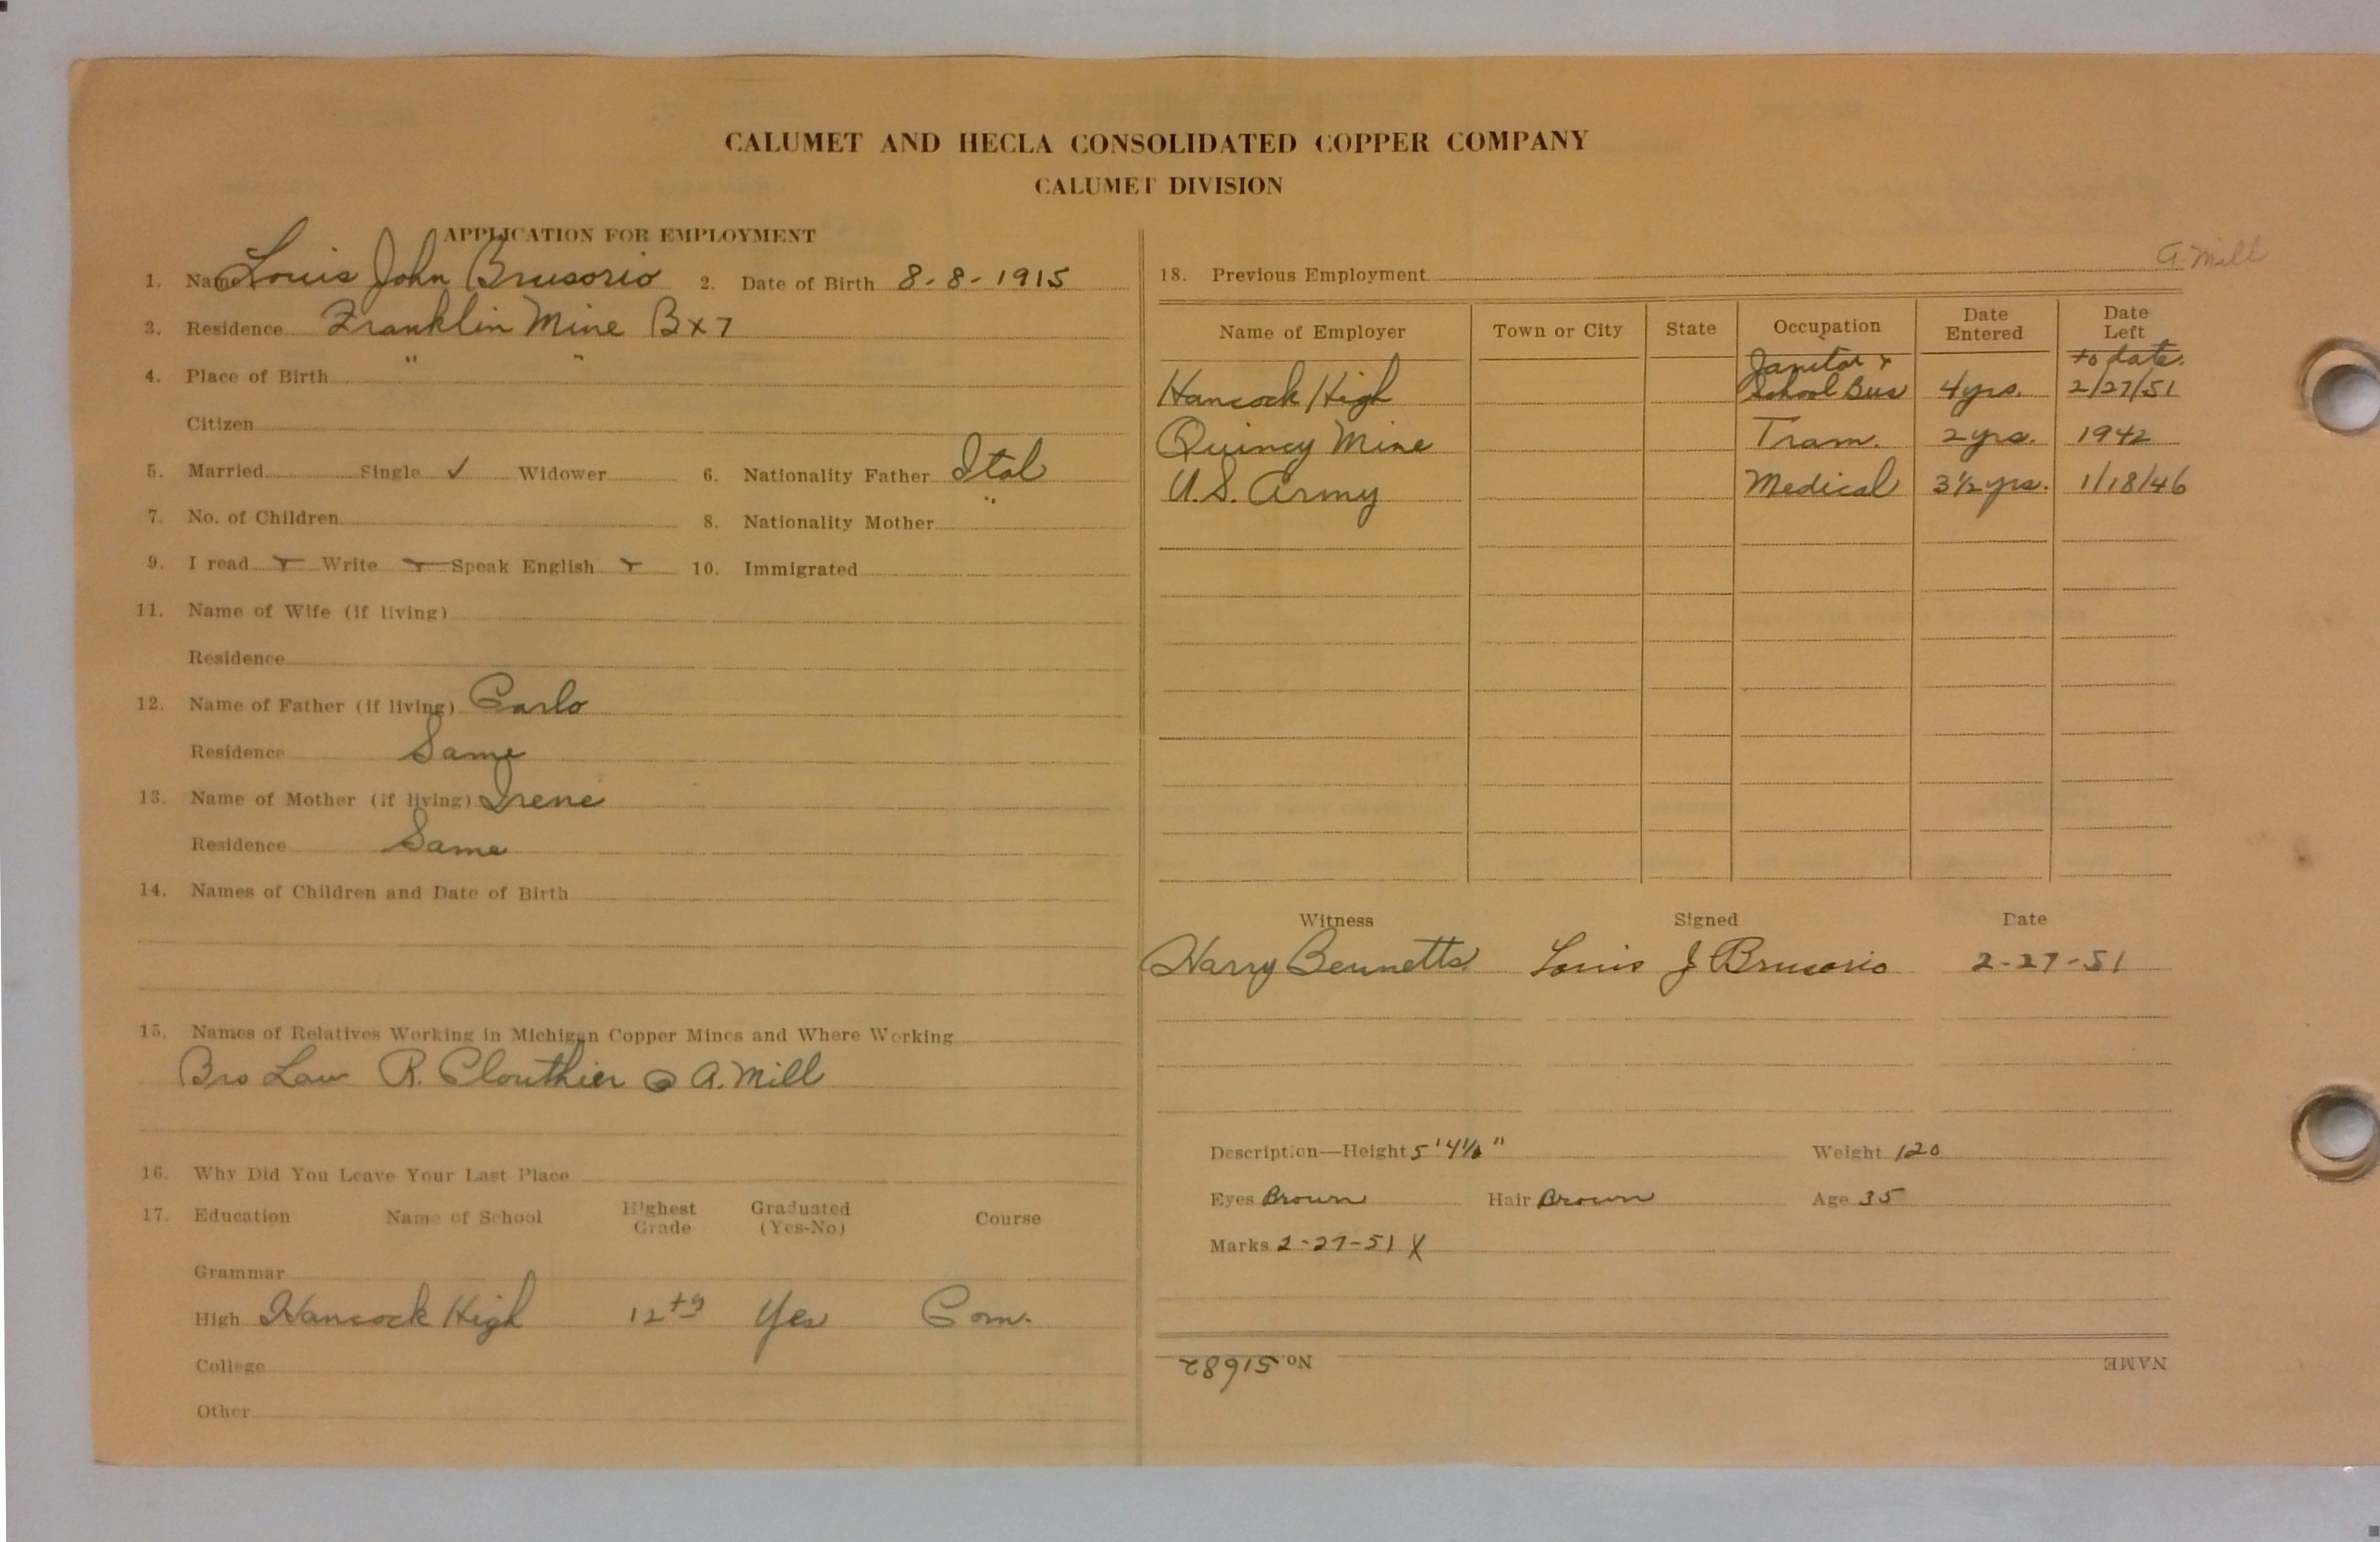 CALUMET AND HECLA CONSOLIDATED COPPER COMPANY
CALUMET DIVISION
APPLICATION FOR EMPLOYMENT
1. Name Louis John Brusorio 2. Date of Birth 8-8-1915
3. Residence Franklin Mine Bx 7
4. Place of Birth " "
Citizen
5. Married Single ✓ Widower 6. Nationality Father Ital
7. No. of Children 8. Nationality Mother "
9. I read Write Speak English 10. Immigrated
11. Name of Wife (if living)
Residence
12. Name of Father (if living) Carlo
Residence Same
13. Name of Mother (if living) Irene
Residence Same
14. Names of Children and Date of Birth
15. Names of Relatives Working in Michigan Copper Mines and Where Working
Bro Law R. Clouthier @ A. Mill
16. Why Did You Leave Your Last Place
17. Education Name of School Highest Grade Graduated (Yes-No) Course
Grammar
High Hancock High 12th Yes Com.
College
Other
A. Mill
18. Previous Employment
Name of Employer Town or City State Occupation Date Entered Date Left
Hancock High Janitor & School Bus 4 yrs. to date. 2/27/51
Quincy Mine Tram. 2 yrs. 1942
U.S. Army Medical 3 1/2 yrs. 1/18/46
Witness Signed Date
Harry Bennetts Louis J Brusorio 2-27-51
Description—Height 5'4 1/2" Weight 120
Eyes Brown Hair Brown Age 35
Marks 2-27-51 X
No. 51682 NAME